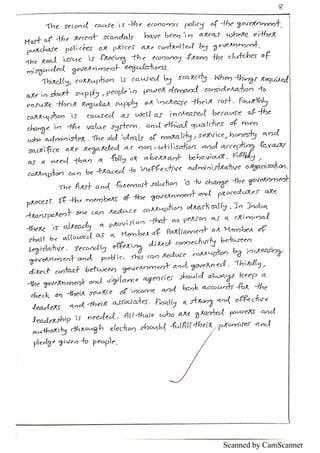 8
The second cause is the economic policy of the government.
Most of the recent scandals have been in areas where either
purchase policies or prices are controlled by government.
The real issue is freeing the economy from the clutches of
misguided government regulations.
Thirdly, corruption is caused by scarcity. When things required
are in short supply, people in power demand consideration to
ensure their regular supply or increase their cost. Fourthly
corruption is caused as well as increased because of the
change in the value system and ethical qualities of men
who administer. The old ideals of morality, service, honesty and
sacrifice are regarded as non-utilisation and accepting favours
as a need than a folly or aberrant behaviour. Fifthly,
corruption can be traced to ineffective administrative organisation.
The first and foremost solution is to change the government
process. If the members of the government and procedures are
transparent one can reduce corruption drastically. In India
there is already a provision that no person as a criminal
shall be allowed as a Member of Parliament or Member of
legislative. Secondly offering direct connectivity between
government and public. This can reduce corruption by increasing
direct contact between government and governed. Thirdly,
the government and vigilance agencies should always keep a
check on their source of income and bank accounts for the
leaders and their associates. Finally a strong and effective
leadership is needed. All those who are granted powers and
authority through election should fulfill their promises and
pledge given to people.
Scanned by CamScanner